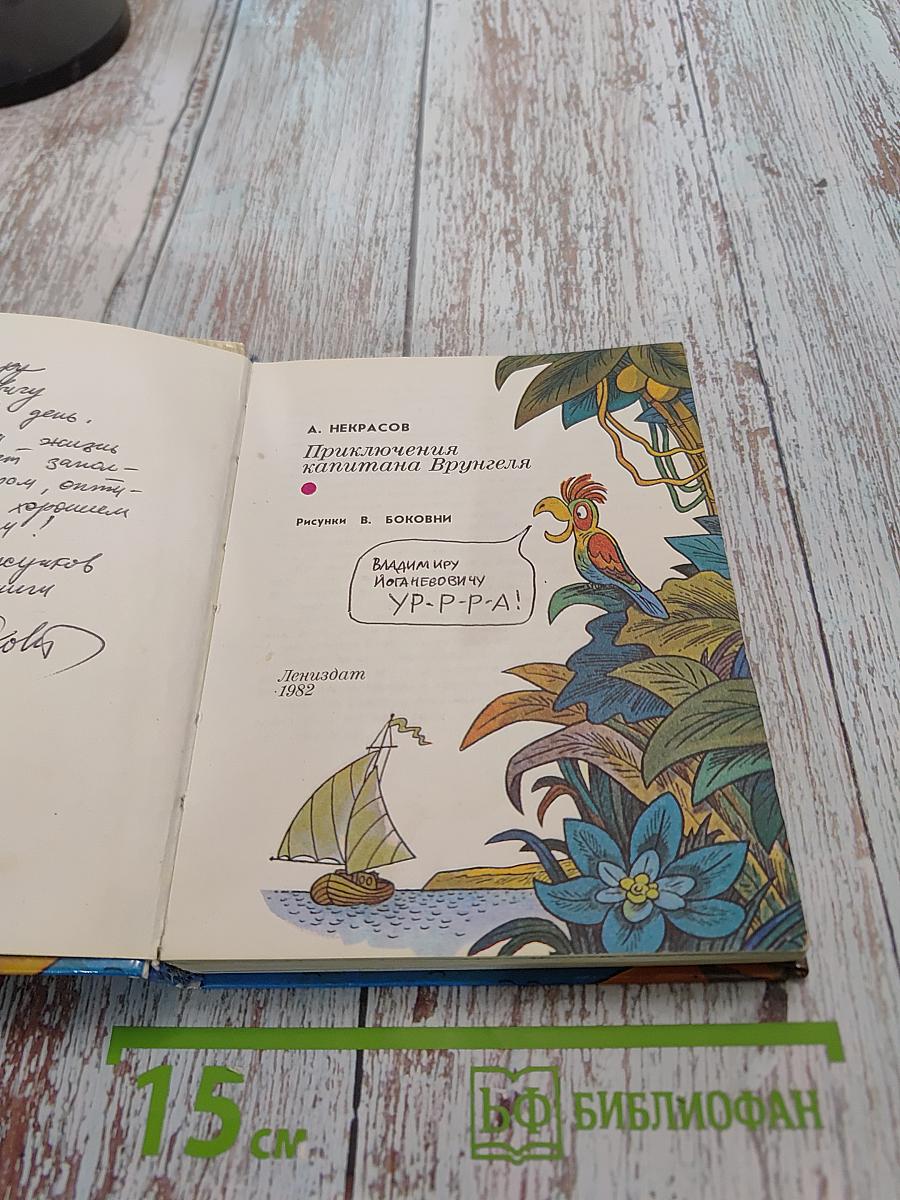 день.
жизнь
запол-
ром, опти-
хорошим
!
А. НЕКРАСОВ
Приключения
капитана Врунгеля
Рисунки В. БОКОВНИ
ВЛАДИМИРУ
ЙОГАНЕВОВИЧУ
УР-Р-Р-А!
Лениздат
1982
15 см
БФ БИБЛИОФАН